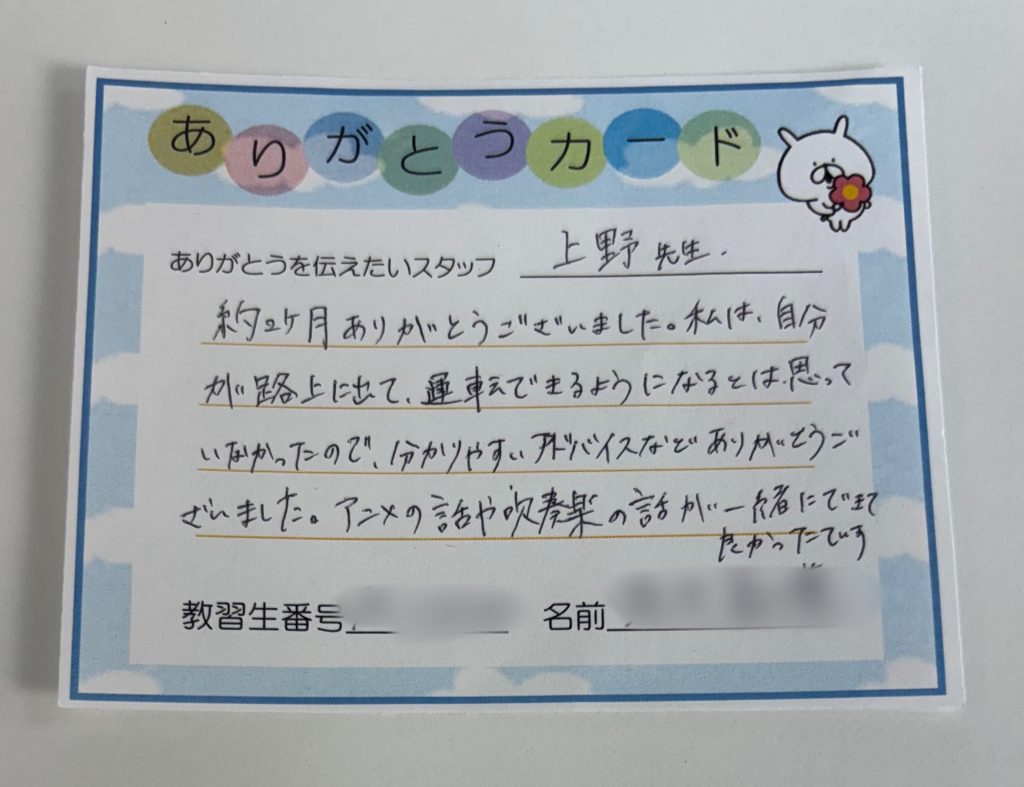 ありがとうカード
ありがとうを伝えたいスタッフ 上野先生.
約2ケ月ありがとうございました。私は、自分
が路上に出て、運転できるようになるとは、思って
いなかったので、分かりやすいアドバイスなどありがとうご
ざいました。アニメの話や吹奏楽の話が一緒にできて
良かったです
教習生番号 名前